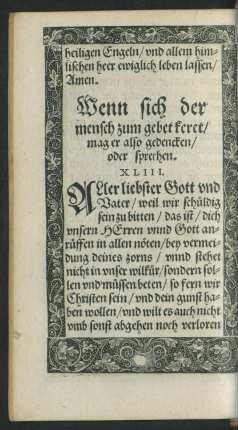 heiligen Engeln/ vnd allem him-
lischen heer ewiglich leben lassen/
Amen.
Wenn sich der
mensch zum gebet keret/
mag er also gedencken/
oder sprechen.
XLIII.
ALler liebster Gott vnd
Vater/ weil wir schüldig
sein zu bitten/ das ist/ dich
vnsern HErren vnnd Gott an-
rüffen in allen nöten/ bey vermei-
dung deines zorns/ vnnd stehet
nicht in vnser wilkür/ sondern sol-
len vnd müssen beten/ so fern wir
Christen sein/ vnd dein gunst ha-
ben wollen/ vnd wilt es auch nicht
vmb sonst abgehen noch verloren